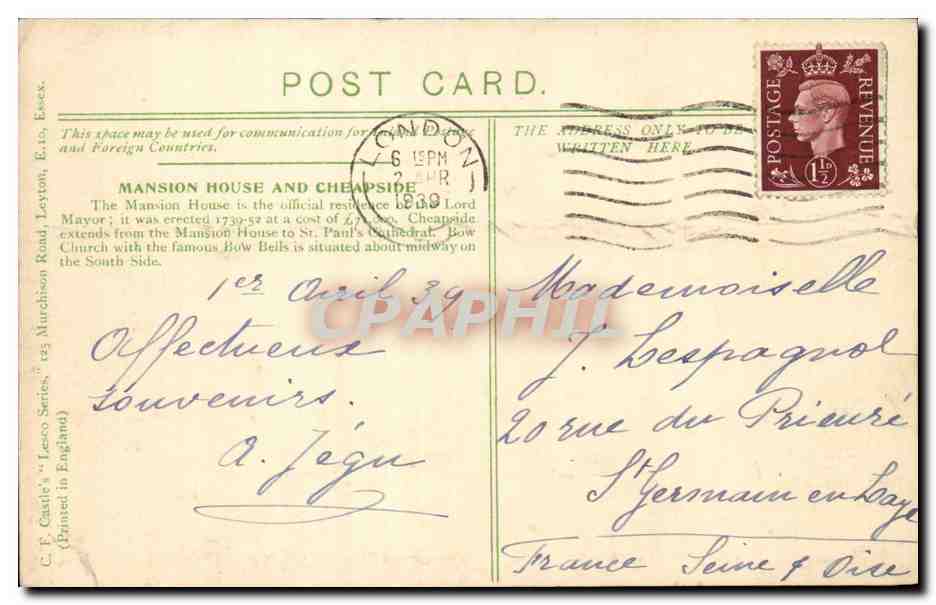 POST CARD.
This space may be used for communication for Inland Postage
and Foreign Countries.
THE ADDRESS ONLY TO BE
WRITTEN HERE.
MANSION HOUSE AND CHEAPSIDE
The Mansion House is the official residence of the Lord
Mayor; it was erected 1739-52 at a cost of £71,000. Cheapside
extends from the Mansion House to St. Paul's Cathedral. Bow
Church with the famous Bow Bells is situated about midway on
the South Side.
C. F. Castle's "Lesco Series," 125 Murchison Road, Leyton, E.10, Essex.
(Printed in England)
LONDON
6 15PM
2 APR
1939
POSTAGE
REVENUE
1½D
1er Avril 39
Affectueux
souvenirs.
A. Jégu
Mademoiselle
J. Lespagnol
20 rue du Prieuré
St Germain en Laye
France Seine & Oise
CPAPHIL